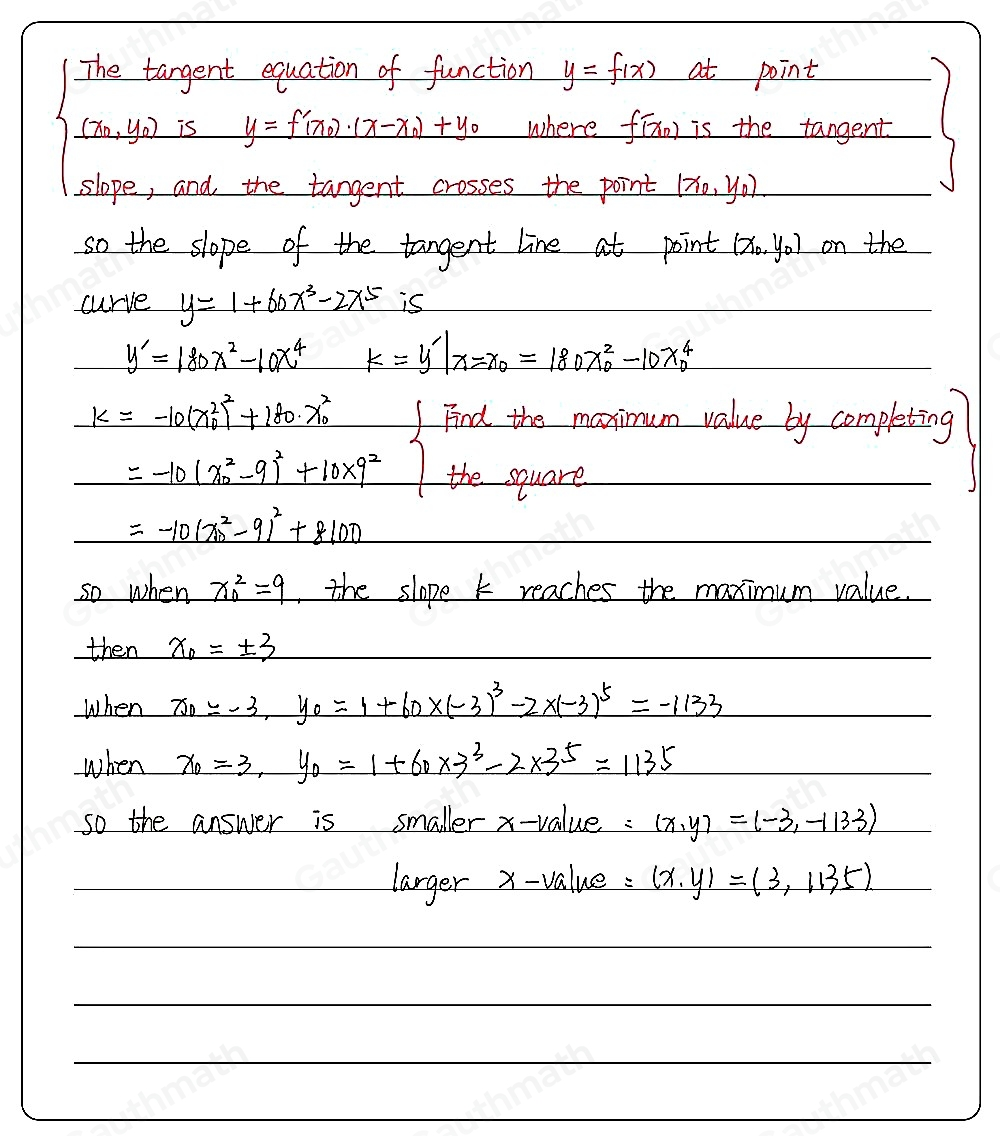 The tangent equation of function y = f(x) at point
(x₀, y₀) is y = f'(x₀)·(x-x₀) + y₀ where f'(x₀) is the tangent
slope, and the tangent crosses the point (x₀, y₀).
so the slope of the tangent line at point (x₀, y₀) on the
curve y = 1+60x³-2x⁵ is
y' = 180x²-10x⁴ k = y'|x=x₀ = 180x₀²-10x₀⁴
k = -10(x₀²)²+180·x₀² Find the maximum value by completing
= -10(x₀²-9)²+10×9² the square
= -10(x₀²-9)²+8100
so when x₀²=9, the slope k reaches the maximum value.
then x₀ = ±3
when x₀ = -3, y₀ = 1+60×(-3)³-2×(-3)⁵ = -1133
when x₀ = 3, y₀ = 1+60×3³-2×3⁵ = 1135
so the answer is smaller x-value : (x,y) = (-3, -1133)
larger x-value : (x.y) = (3, 1135)
Gauthmath